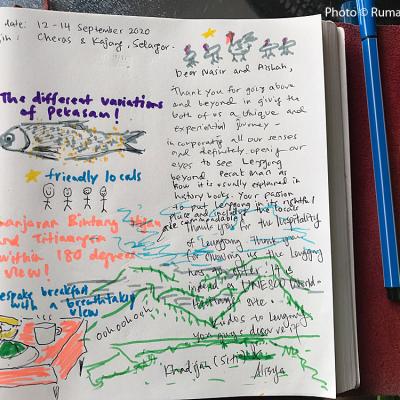 Photo © Ruma
date: 12-14 September 2020
in: Cheras & Kajang, Selangor.
The different variations
of Pekasam!
friendly locals
manjaran Bintang
and Titiwangsa
within 180 degree
view!
bespoke breakfast
with a breathtaking
view
ooh ooh ooh
Dear Nasir and Aishah,
Thank you for going above
and beyond in giving the
both of us a unique and
experiential journey -
incorporating all our senses
and definitely opening our
eyes to see Lenggong
beyond Perak Man as
how it is usually explained in
history books. Your passion
to put Lenggong in its rightful
place and include the locals
are commendable!
Thank you for the hospitality
of Lenggong. Thank you
for showing us the Lenggong
has to offer. It is
indeed a UNESCO World
Heritage site.
Kudos to Lenggong
you guys deserve it
Khadijah
Alisya